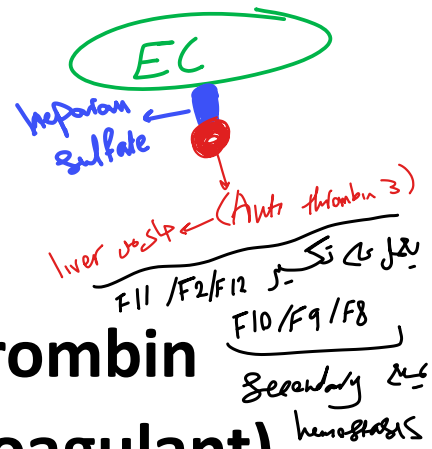 EC
heparan
sulfate
(Anti thrombin 3)
liver
يعمل على تكسير
F11 /F2/F12
F10/F9/F8
rombin
secondary
hemostasis
oagulant)